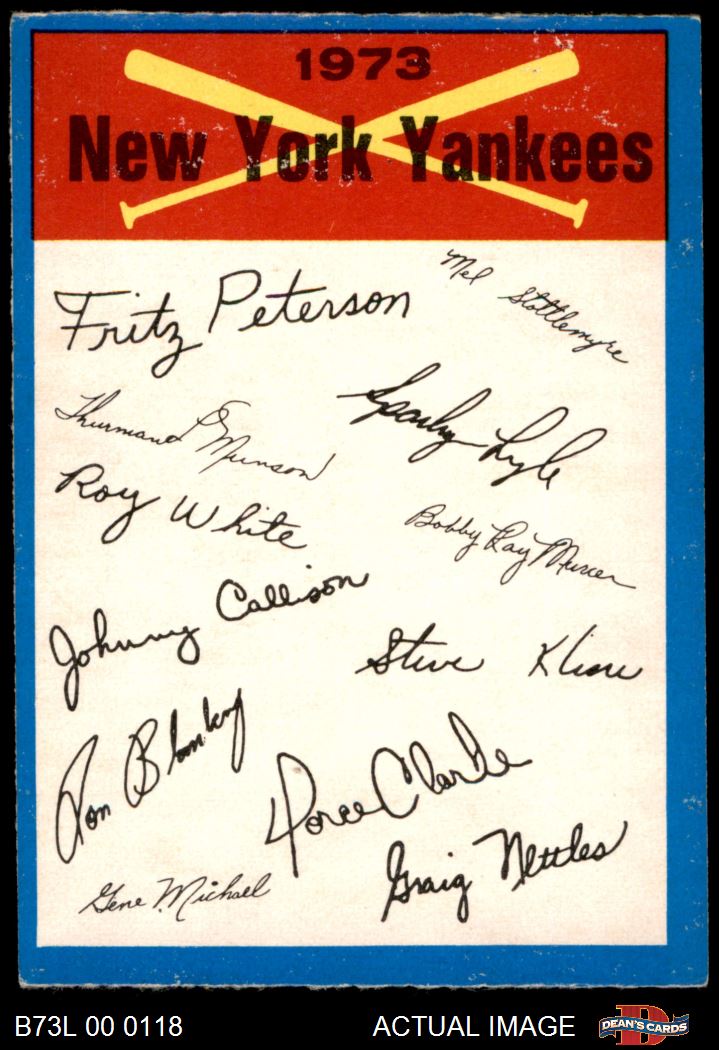 1973
New York Yankees
Fritz Peterson
Mel Stottlemyre
Thurman L Munson
Sparky Lyle
Roy White
Bobby Ray Murcer
Johnny Callison
Steve Kline
Ron Blomberg
Horace Clarke
Graig Nettles
Gene Michael
B73L 00 0118
ACTUAL IMAGE
D
DEAN'S CARDS